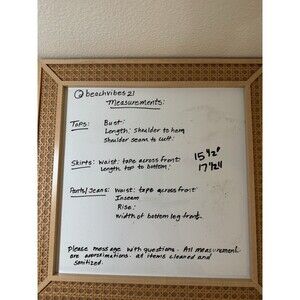 @beachvibes21
Measurements:
Tops: Bust:
Length: Shoulder to hem
Shoulder seam to cuff:
Skirts: Waist: tape across front: 15 1/2"
Length top to bottom: 17 1/2"
Pants/Jeans: Waist: tape across front:
Inseam
Rise:
Width of bottom leg front:
Please message with questions. All measurements
are approximations. all items cleaned and
sanitized.